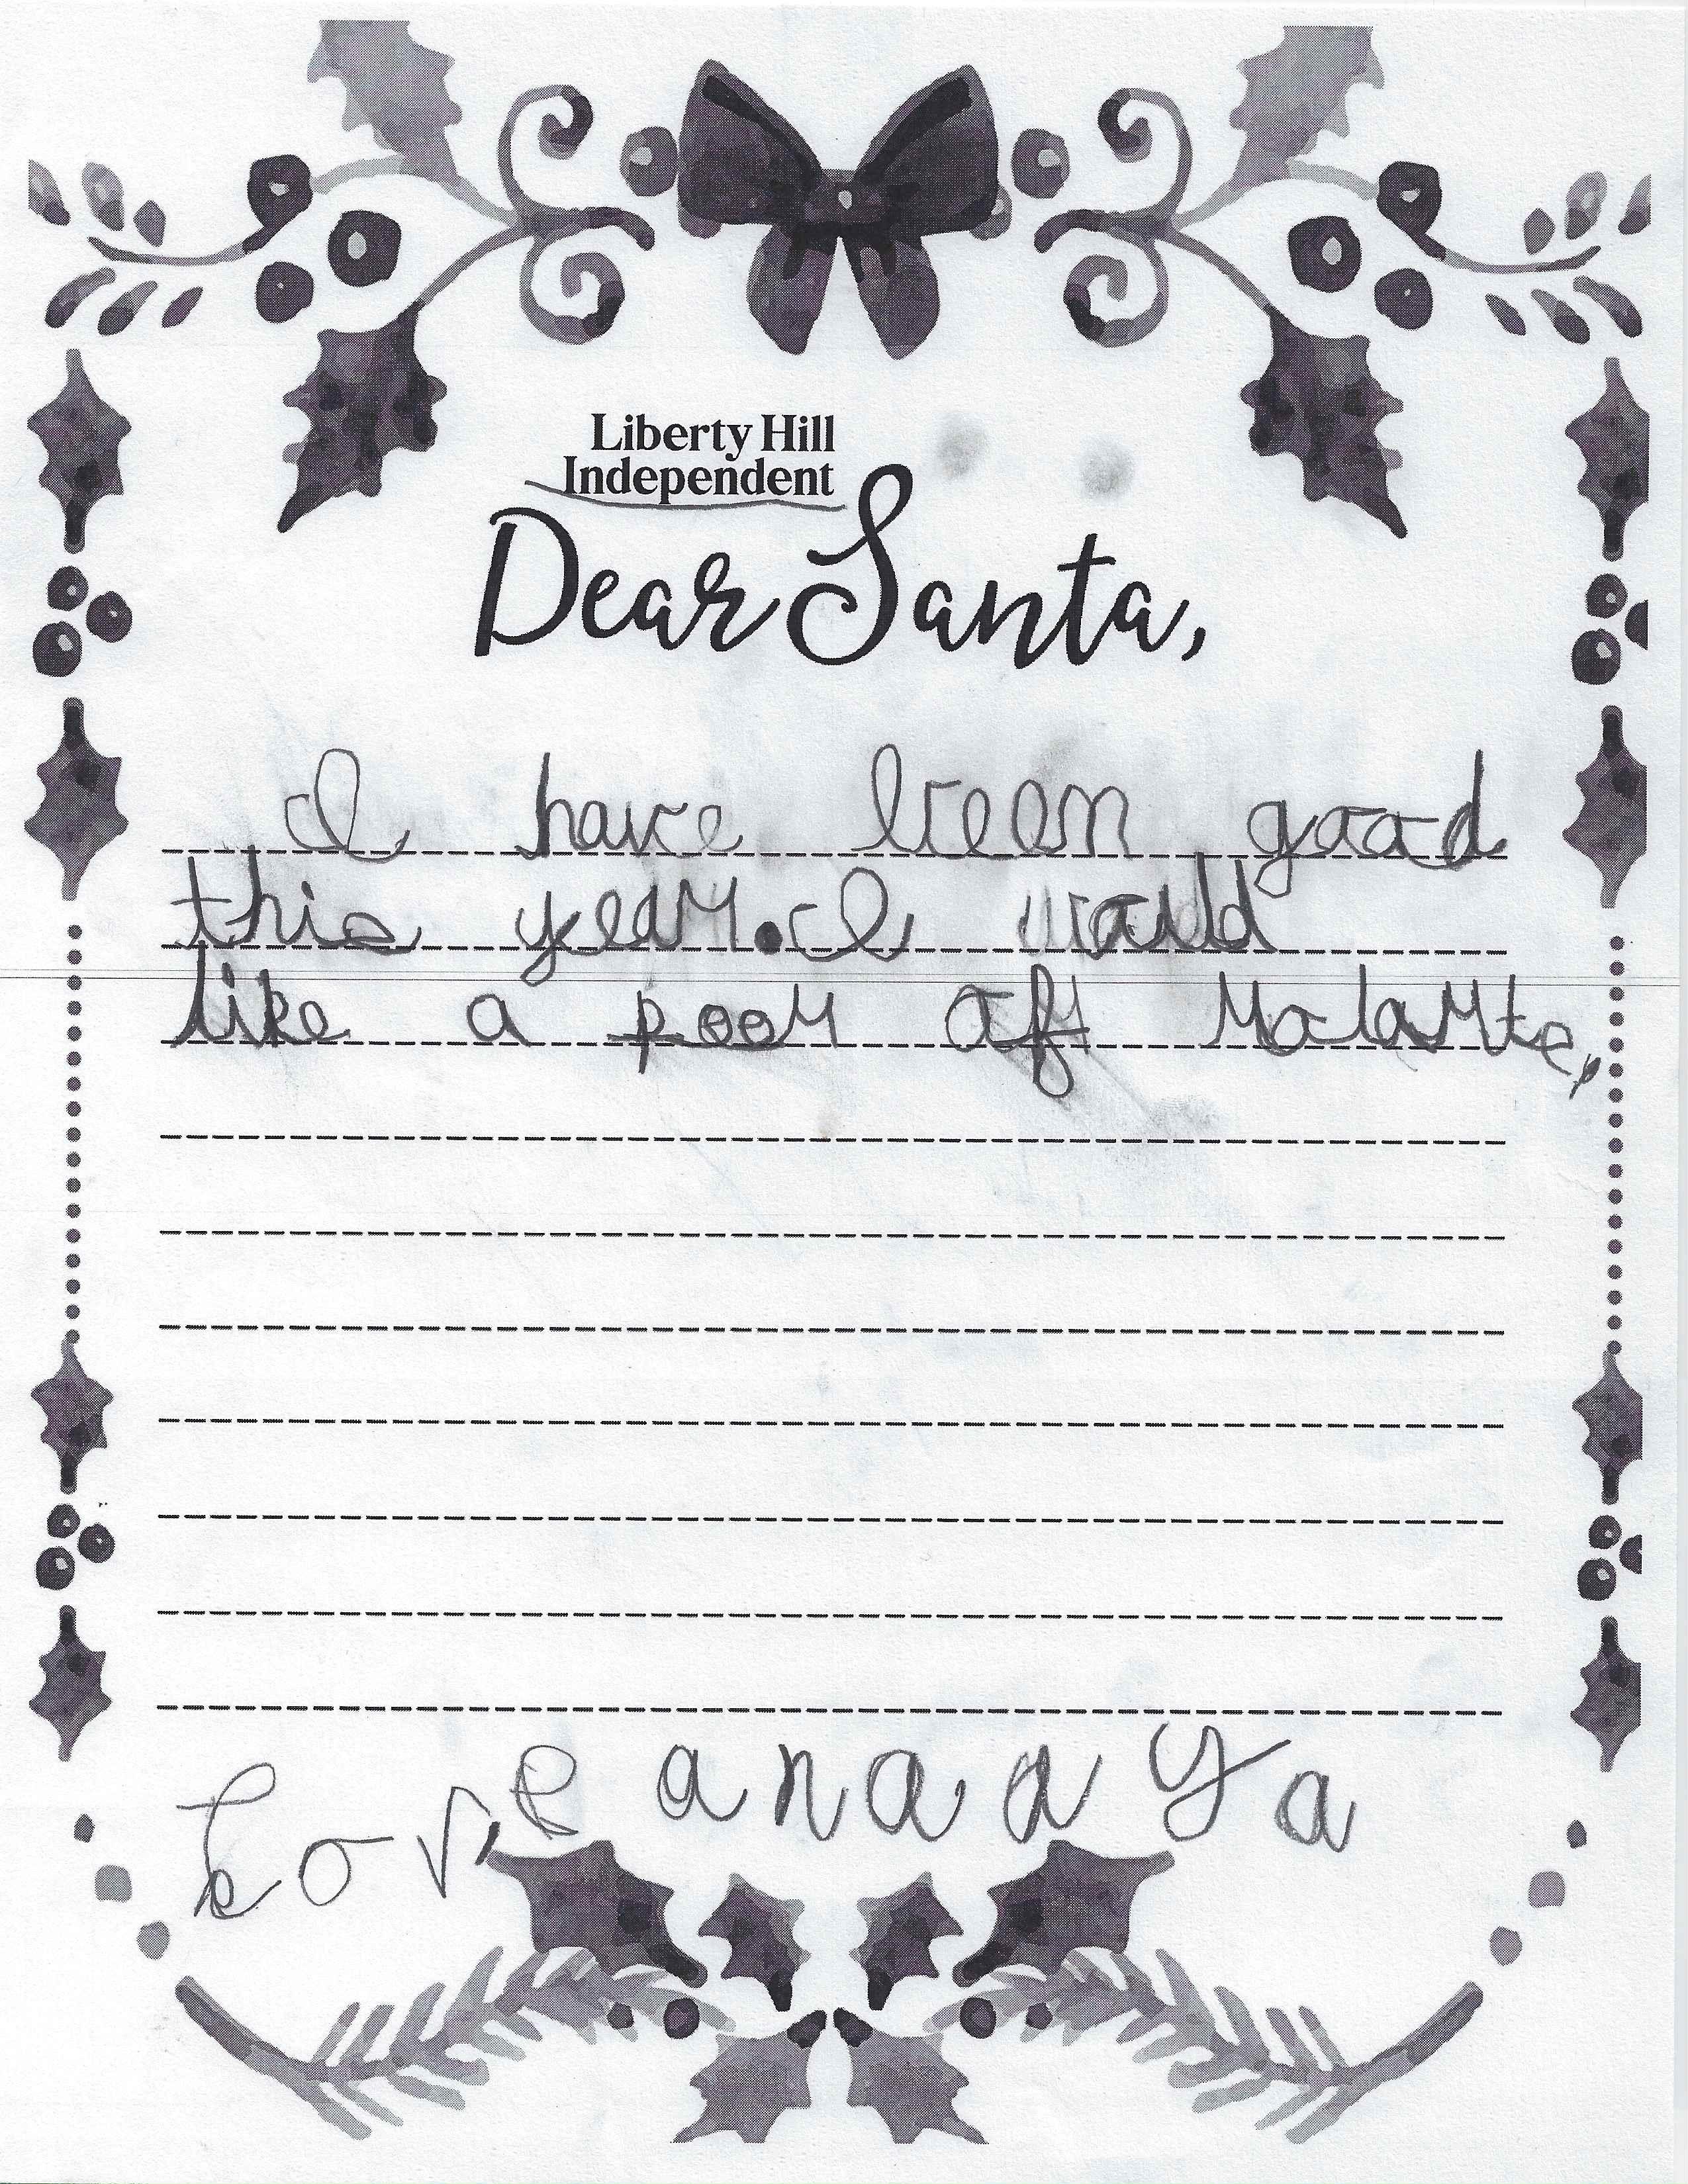 Liberty Hill
Independent
Dear Santa,
I have been good
this year. I would
like a poor
Love anaaya